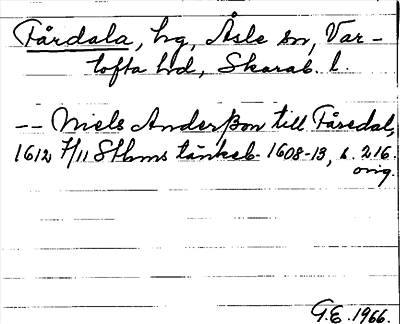 Fårdala, hg, Åsle sn, Var-
tofta hd, Skarab. l.
-- Niels Anderßon till Fåredal,
1612 7/11 Sthms tänkeb. 1608-13, s. 216.
orig.
G.E. 1966.